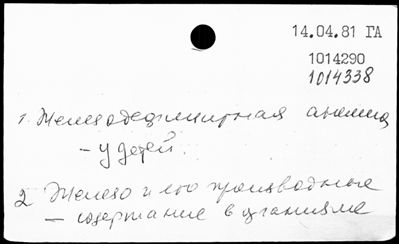 14.04.81 ГА
1014290
1014338
1. Железодефицитная анемия
- у детей.
2 Железо и его производные
- содержание в организме